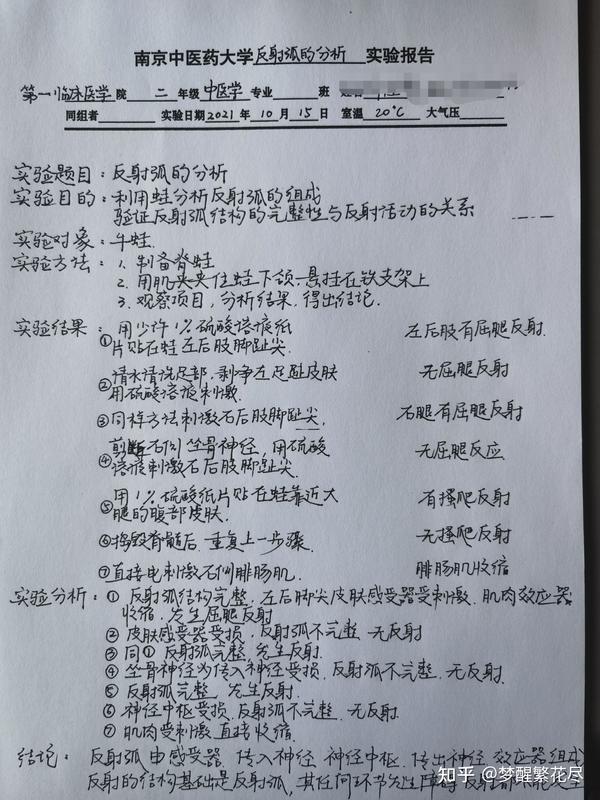 南京中医药大学反射弧的分析 实验报告
第一临床医学院 二 年级 中医学 专业 班
同组者 实验日期 2021 年 10 月 15 日 室温 20°C 大气压
实验题目：反射弧的分析
实验目的：利用蛙分析反射弧的组成
验证反射弧结构的完整性与反射活动的关系
实验对象：牛蛙.
实验方法：1. 制备脊蛙
2. 用肌夹夹住蛙下颌.悬挂在铁支架上
3. 观察项目,分析结果,得出结论.
实验结果：用少许1%硫酸溶液纸 左后肢有屈腿反射.
①片贴在蛙左后肢脚趾尖.
清水清洗足部,剥净左足趾皮肤 无屈腿反射
②用硫酸溶液刺激.
③同样方法刺激右后肢脚趾尖. 右腿有屈腿反射
剪断右侧坐骨神经,用硫酸 无屈腿反应
④溶液刺激右后肢脚趾尖
用1%硫酸纸片贴在蛙靠近大 有搔爬反射
⑤腿的腹部皮肤.
⑥捣毁脊髓后.重复上一步骤. 无搔爬反射
⑦直接电刺激右侧腓肠肌. 腓肠肌收缩
实验分析：① 反射弧结构完整.左后脚尖皮肤感受器受刺激.肌肉效应器
收缩.发生屈腿反射
② 皮肤感受器受损,反射弧不完整.无反射
③ 同① 反射弧完整.发生反射.
④ 坐骨神经为传入神经受损.反射弧不完整.无反射.
⑤ 反射弧完整.发生反射.
⑥ 神经中枢受损.反射弧不完整.无反射.
⑦ 肌肉受刺激.直接收缩.
结论：反射弧由感受器.传入神经.神经中枢.传出神经.效应器组成
反射的结构基础是反射弧,其任何环节发生障碍
知乎 @梦醒繁花尽